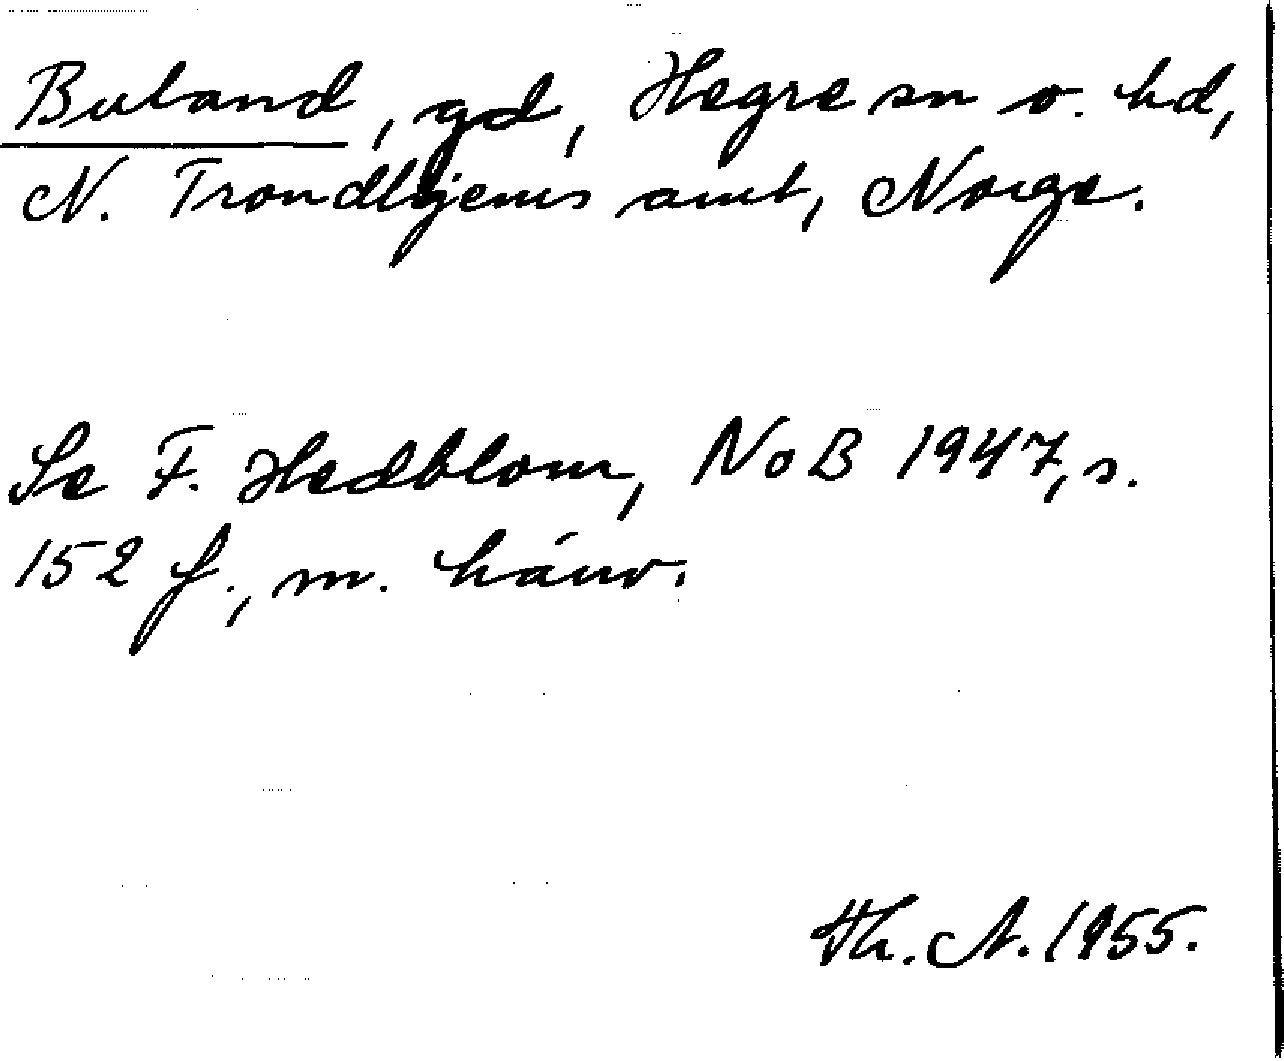 Buland, gd, Hegre sn o. hd,
N. Trondhjems amt, Norge.
Se F. Hedblom, NoB 1947, s.
152 f., m. hänv.
Th. A. 1955.